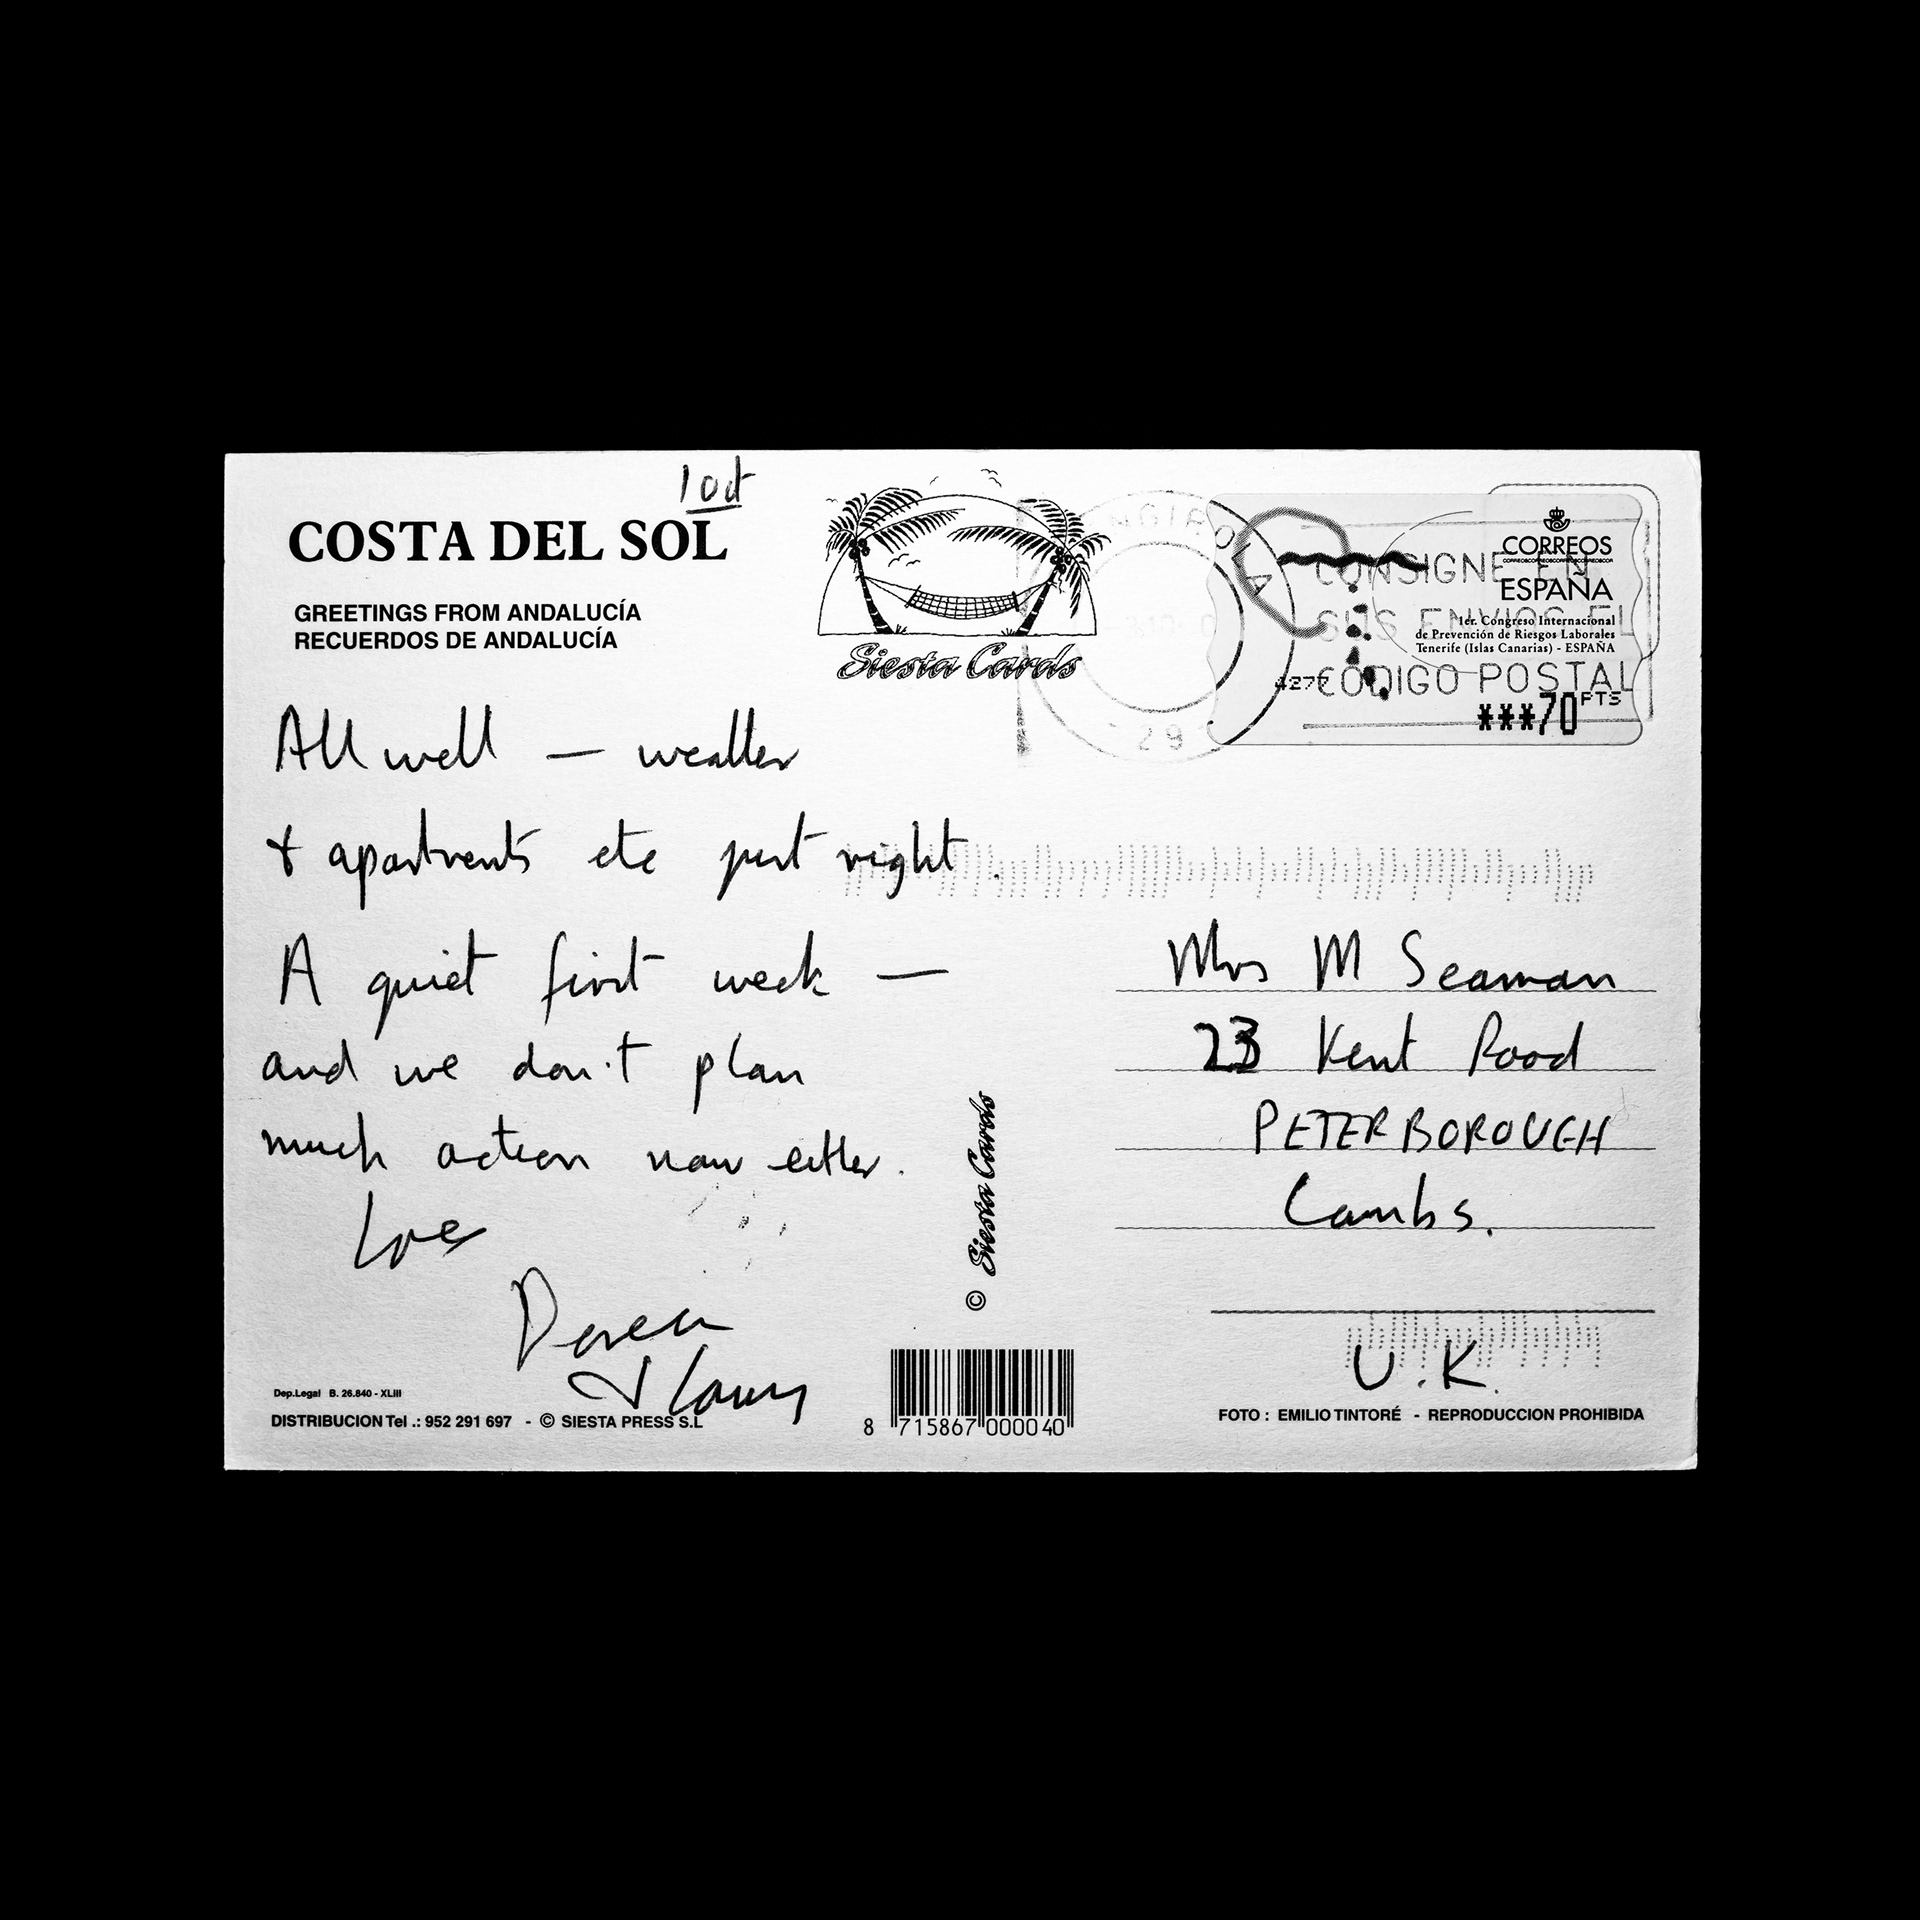 1 Oct
COSTA DEL SOL
GREETINGS FROM ANDALUCÍA
RECUERDOS DE ANDALUCÍA
Siesta Cards
CORREOS
ESPAÑA
1er. Congreso Internacional
de Prevención de Riesgos Laborales
Tenerife (Islas Canarias) - ESPAÑA
CONSIGNE EN
SUS ENVIOS EL
CODIGO POSTAL
4277
***70 PTS
29
All well — weather
& apartments etc just right.
A quiet first week —
and we don't plan
much action now either.
Love
Doreen
& Laury
Mrs M Seaman
23 Kent Road
PETERBOROUGH
Cambs.
U.K.
© Siesta Cards
Dep.Legal B. 26.840 - XLIII
DISTRIBUCION Tel .: 952 291 697 - © SIESTA PRESS S.L
8 715867 000040
FOTO : EMILIO TINTORÉ - REPRODUCCION PROHIBIDA